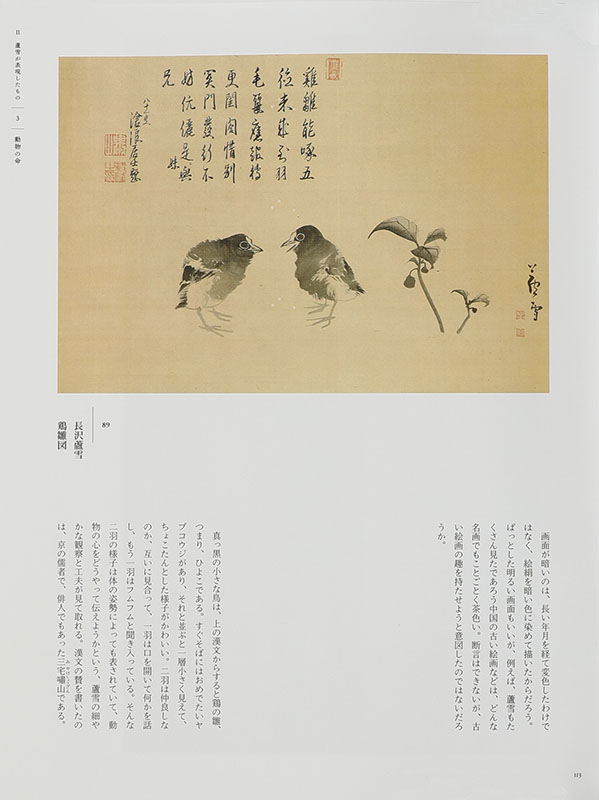 蘆雪
雞雛能啄五
羽
毛
更闌
惜別
門
不
是與
兄
八十一叟
89
長沢蘆雪
鶏雛図
画面が暗いのは、長い年月を経て変色したわけで
はなく、絵絹を暗い色に染めて描いたからだろう。
ぱっとした明るい画面もいいが、例えば、蘆雪もた
くさん見たであろう中国の古い絵画などは、どんな
名画でもことごとく茶色い。断言はできないが、古
い絵画の趣を持たせようと意図したのではないだろ
うか。
真っ黒の小さな鳥は、上の漢文からすると鶏の雛、
つまり、ひよこである。すぐそばにはおめでたいヤ
ブコウジがあり、それと並ぶと一層小さく見えて、
ちょこたんとした様子がかわいい。二羽は仲良しな
のか、互いに見合って、一羽は口を開いて何かを話
し、もう一羽はフムフムと聞き入っている。そんな
二羽の様子は体の姿勢によっても表されていて、動
物の心をどうやって伝えようかという、蘆雪の細や
かな観察と工夫が見て取れる。漢文の賛を書いたの
は、京の儒者で、俳人でもあった三宅嘯山である。
II 蘆雪が表現したもの 3 動物の命
113